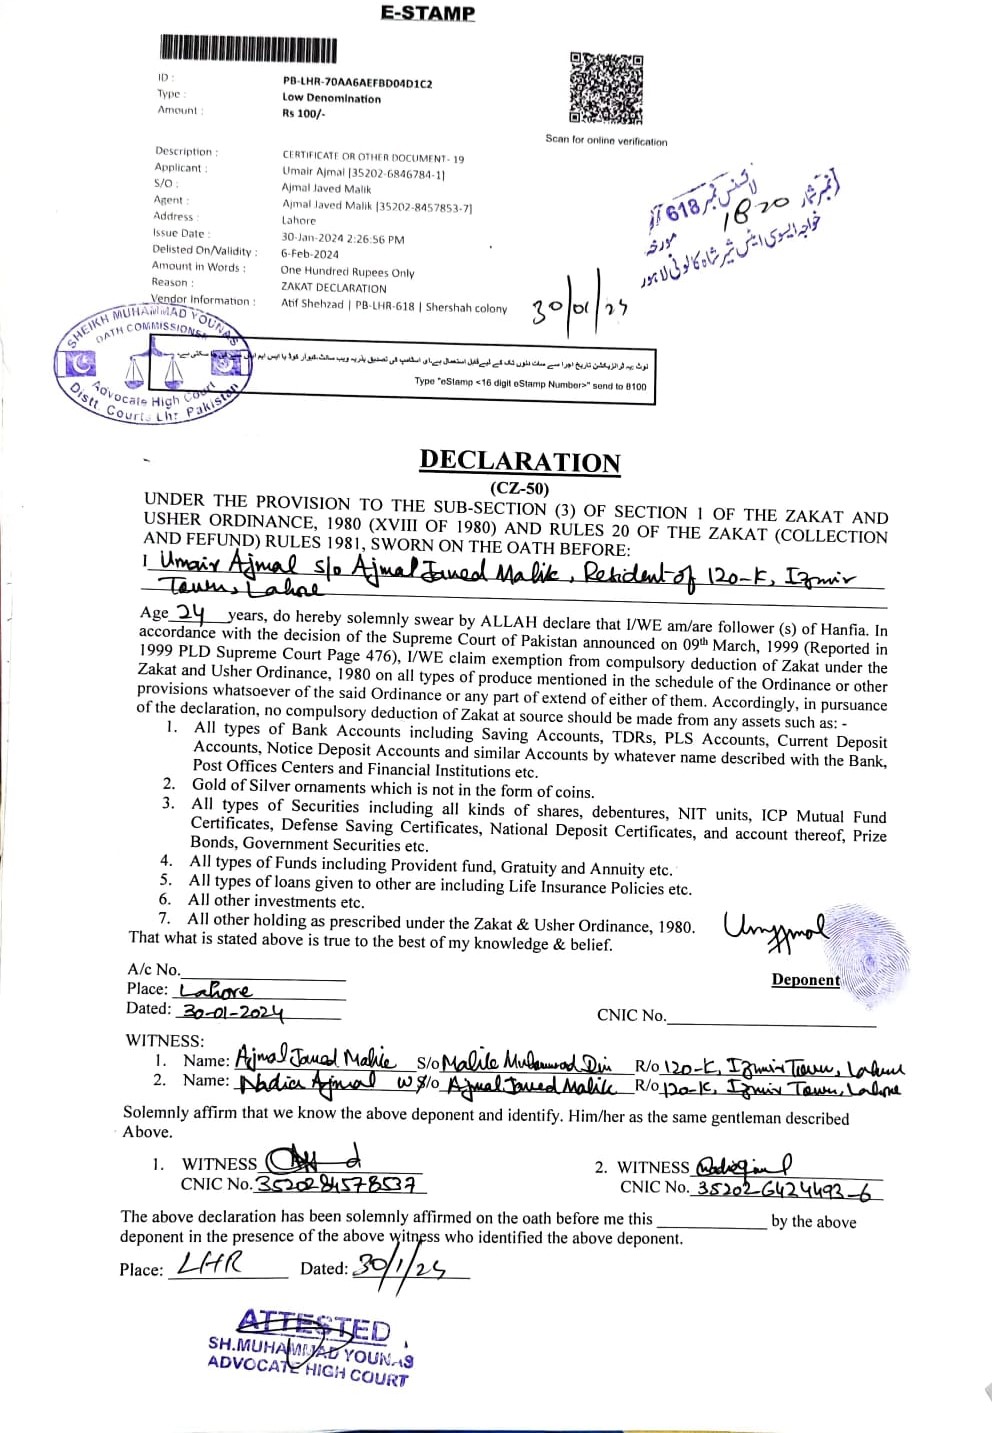 E-STAMP
ID : PB-LHR-70AA6AEFBD04D1C2
Type : Low Denomination
Amount : Rs 100/-
Scan for online verification
Description : CERTIFICATE OR OTHER DOCUMENT- 19
Applicant : Umair Ajmal [35202-6846784-1]
S/O : Ajmal Javed Malik
Agent : Ajmal Javed Malik [35202-8457853-7]
Address : Lahore
Issue Date : 30-Jan-2024 2:26:56 PM
Delisted On/Validity : 6-Feb-2024
Amount in Words : One Hundred Rupees Only
Reason : ZAKAT DECLARATION
Vendor Information : Atif Shehzad | PB-LHR-618 | Shershah colony
نمبر شمار 1820 لائسنس نمبر 618
مورخہ
خواجہ ایسوسی ایٹس شیر شاہ کالونی لاہور
30/01/24
SHEIKH MUHAMMAD YOUNAS
OATH COMMISSIONER
Advocate High Court
Distt. Courts Lhr. Pakistan
نوٹ یہ ٹرانزیکشن تاریخ اجرا سے سات دنوں تک کے لیے قابل استعمال ہے۔ای اسٹامپ کی تصدیق بذریعہ ویب سائٹ،کیو آر کوڈ یا ایس ایم ایس سے کی جا سکتی ہے۔
Type "eStamp <16 digit eStamp Number>" send to 8100
DECLARATION
(CZ-50)
UNDER THE PROVISION TO THE SUB-SECTION (3) OF SECTION 1 OF THE ZAKAT AND
USHER ORDINANCE, 1980 (XVIII OF 1980) AND RULES 20 OF THE ZAKAT (COLLECTION
AND FEFUND) RULES 1981, SWORN ON THE OATH BEFORE:
I Umair Ajmal s/o Ajmal Javed Malik, Resident of 120-K, Izmir
Town, Lahore
Age 24 years, do hereby solemnly swear by ALLAH declare that I/WE am/are follower (s) of Hanfia. In
accordance with the decision of the Supreme Court of Pakistan announced on 09th March, 1999 (Reported in
1999 PLD Supreme Court Page 476), I/WE claim exemption from compulsory deduction of Zakat under the
Zakat and Usher Ordinance, 1980 on all types of produce mentioned in the schedule of the Ordinance or other
provisions whatsoever of the said Ordinance or any part of extend of either of them. Accordingly, in pursuance
of the declaration, no compulsory deduction of Zakat at source should be made from any assets such as: -
1. All types of Bank Accounts including Saving Accounts, TDRs, PLS Accounts, Current Deposit
Accounts, Notice Deposit Accounts and similar Accounts by whatever name described with the Bank,
Post Offices Centers and Financial Institutions etc.
2. Gold of Silver ornaments which is not in the form of coins.
3. All types of Securities including all kinds of shares, debentures, NIT units, ICP Mutual Fund
Certificates, Defense Saving Certificates, National Deposit Certificates, and account thereof, Prize
Bonds, Government Securities etc.
4. All types of Funds including Provident fund, Gratuity and Annuity etc.
5. All types of loans given to other are including Life Insurance Policies etc.
6. All other investments etc.
7. All other holding as prescribed under the Zakat & Usher Ordinance, 1980.
That what is stated above is true to the best of my knowledge & belief.
A/c No.
Deponent
Place: Lahore
Dated: 30-01-2024
CNIC No.
WITNESS:
1. Name: Ajmal Javed Malik S/o Malik Muhammad Din R/o 120-K, Izmir Town, Lahore
2. Name: Nadia Ajmal W S/o Ajmal Javed Malik R/o 120-K, Izmir Town, Lahore
Solemnly affirm that we know the above deponent and identify. Him/her as the same gentleman described
Above.
1. WITNESS
CNIC No. 3520284578537
2. WITNESS
CNIC No. 35202-6424493-6
The above declaration has been solemnly affirmed on the oath before me this by the above
deponent in the presence of the above witness who identified the above deponent.
Place: LHR Dated: 30/1/24
ATTESTED
SH.MUHAMMAD YOUNAS
ADVOCATE HIGH COURT